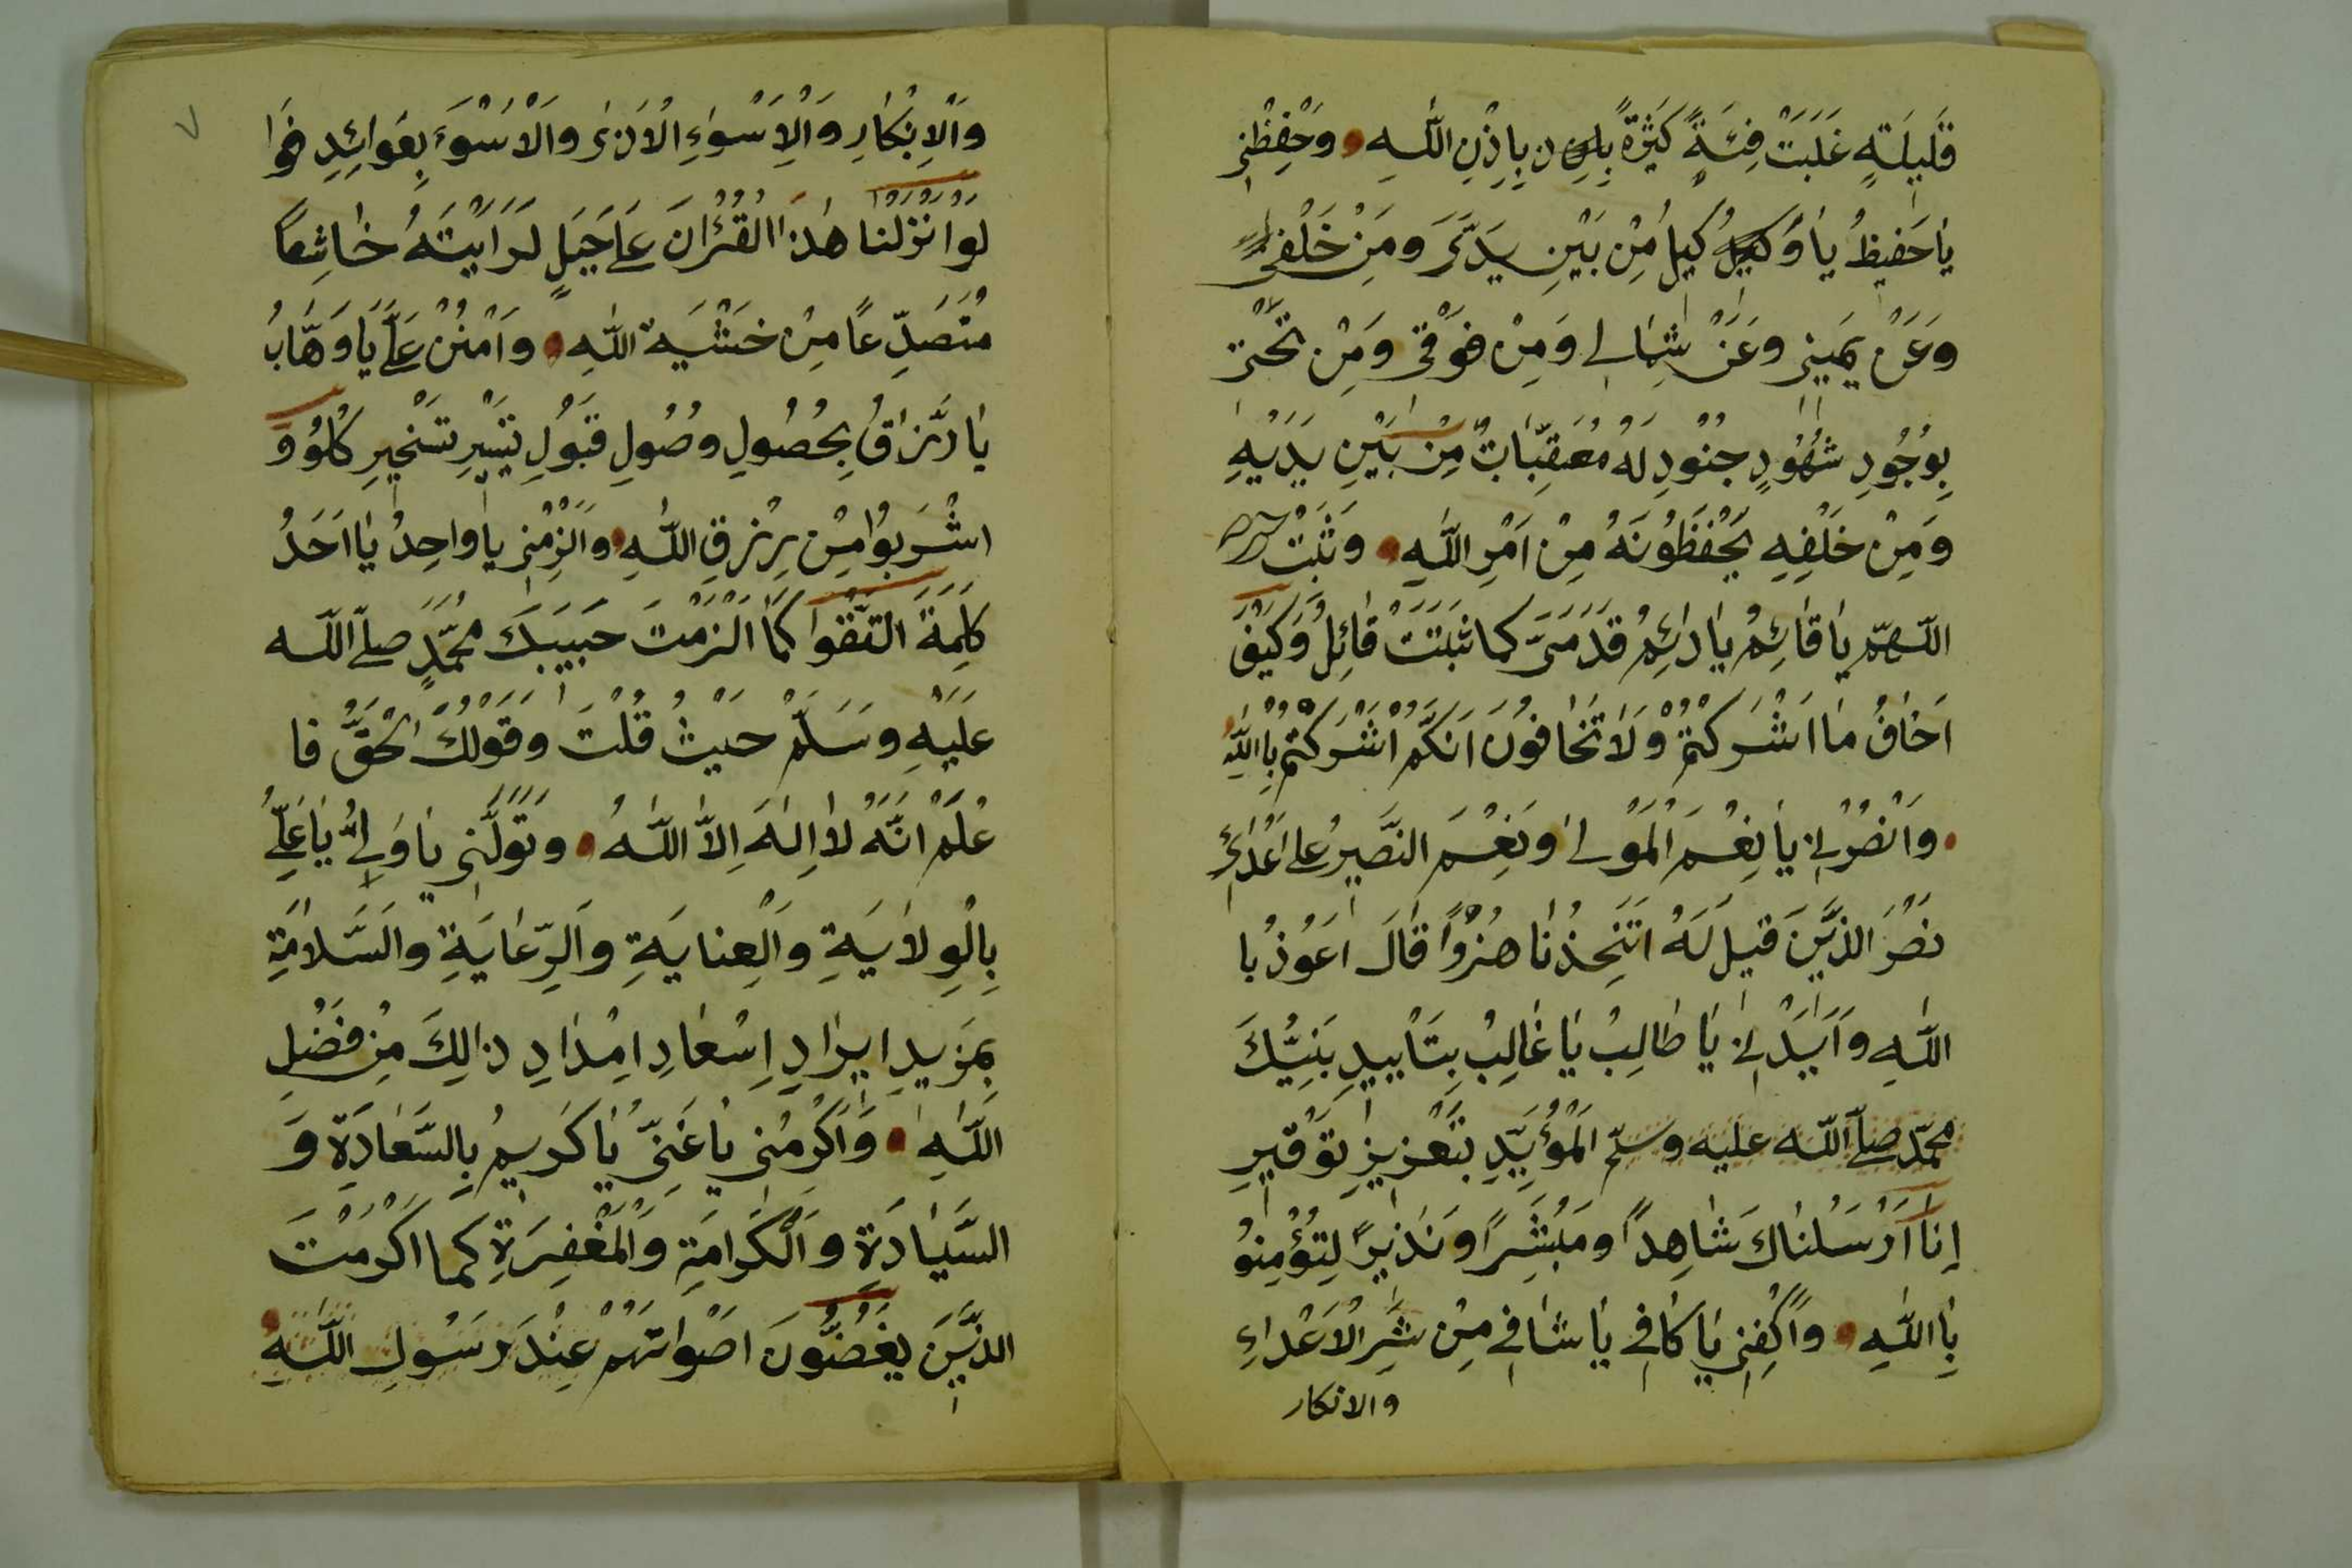 قَلِيلَةٍ غَلَبَتْ فِئَةً كَثِيرَةً بِاِذْنِ اللّٰهِ وَحْفِظْنِي
يٰا حَفِيظُ يٰا وَكِيلُ مِنْ بَيْنِ يَدَيَّ وَمِنْ خَلْفِي
وَعَنْ يَمِينِي وَعَنْ شِمَالِي وَمِنْ فَوْقِي وَمِنْ تَحْتِي
بِوُجُودِ شُهُودِ جُنُودِ لَهُ مُعَقِّبَاتٌ مِنْ بَيْنِ يَدَيْهِ
وَمِنْ خَلْفِهِ يَحْفَظُونَهُ مِنْ اَمْرِ اللّٰهِ وَثَبِّتْ
اللّٰهمّ يٰا قٰائِمُ يٰا دٰائِمُ قَدَمَيَّ كما ثَبَّتَّ قٰائِلُ وَكَيْفَ
اَخٰافُ مٰا اَشْرَكْتُمْ وَلٰا تَخٰافُونَ اَنَّكُمْ اَشْرَكْتُمْ بِاللّٰهِ
وَانْصُرْنِي يٰا نِعْمَ الْمَوْلىٰ وَنِعْمَ النَّصِيرُ على اَعْدٰائِي
نَصْرَ الَّذِينَ قِيلَ لَهُ اَتَتَّخِذُنٰا هُزُوًا قٰالَ اَعُوذُ بِا
للّٰهِ وَاَيِّدْنِي يٰا طٰالِبُ يٰا غٰالِبُ بِتَأْيِيدِ نَبِيِّكَ
محمّد صلى اللّٰه عليه وسلم الْمُؤَيَّدِ بِتَعْزِيزِ تَوْقِيرِ
إِنّٰا اَرْسَلْنٰاكَ شٰاهِدًا وَمُبَشِّرًا وَنَذِيرًا لِتُؤْمِنُو
بِاللّٰهِ وَاكْفِنِي يٰا كٰافِي يٰا شٰافِي مِنْ شَرِّ الْاَعْدٰاءِ
والانكار
٧
وَالْاِنْكٰارِ وَالْاِسْوٰاءِ الْاَدْنىٰ وَالْاَسْوَءَ بِعَوٰائِدِ فَوٰا
لَوْ اَنْزَلْنٰا هٰذَا الْقُرْاٰنَ عَلى جَبَلٍ لَرَاَيْتَهُ خٰاشِعًا
مُتَصَدِّعًا مِنْ خَشْيَةِ اللّٰهِ وَامْنُنْ عَلَيَّ يٰا وَهَّابُ
يٰا رَزّٰاقُ بِحُصُولِ وُصُولِ قَبُولِ تَيْسِيرِ تَسْخِيرِ كُلُوُ وَ
اشْرَبُوا مِنْ رِزْقِ اللّٰهِ وَاَلْزِمْنِي يٰا وٰاحِدُ يٰا اَحَدُ
كَلِمَةَ التَّقْوٰا كَمٰا اَلْزَمْتَ حَبِيبَكَ مُحَمَّدٍ صلى اللّٰه
عَلَيْهِ وَسَلَّمْ حَيْثُ قُلْتَ وَقَوْلُكَ الْحَقُّ فَا
عْلَمْ اَنَّهُ لٰا اِلٰهَ اِلاَّ اللّٰهُ وَتَوَلَّنِي يٰا وَلِيُّ يٰا عَلِيُّ
بِالْوِلٰايَةِ وَالْعِنٰايَةِ وَالرِّعٰايَةِ وَالسَّلٰامَةِ
بِمَزِيدِ اِيرٰادِ اِسْعٰادِ اِمْدٰادِ ذٰالِكَ مِنْ فَضْلِ
اللّٰهِ وَاَكْرِمْنِي يٰا غَنِيُّ يٰا كَرِيمُ بِالسَّعٰادَةِ وَ
السَّيٰادَةِ وَالْكَرٰامَةِ وَالْمَغْفِرَةِ كما اَكْرَمْتَ
الَّذِينَ يَغُضُّونَ اَصْوٰاتَهُمْ عِنْدَ رَسُولِ اللّٰهِ